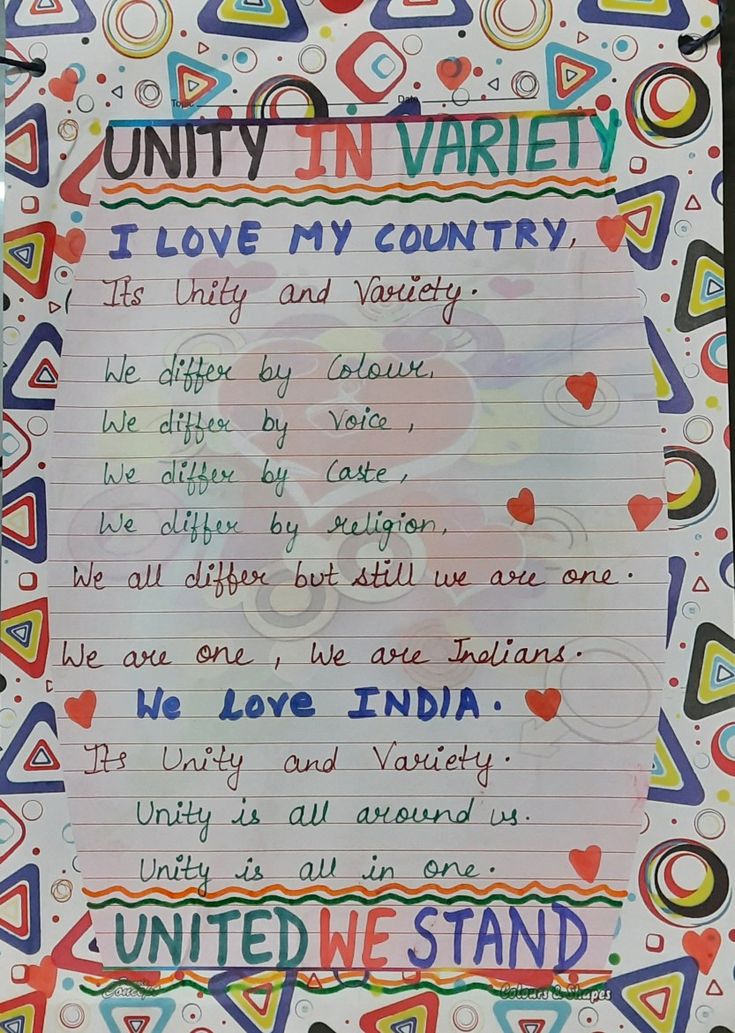 Topic Date
UNITY IN VARIETY
I LOVE MY COUNTRY,
Its Unity and Variety.
We differ by Colour,
We differ by Voice,
We differ by Caste,
We differ by religion,
We all differ but still we are one.
We are one, We are Indians.
We Love INDIA.
Its Unity and Variety.
Unity is all around us.
Unity is all in one.
UNITED WE STAND
Concept Colours & Shapes